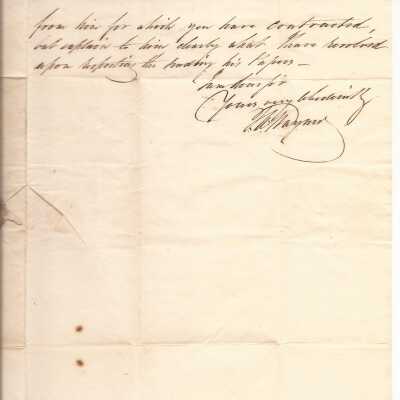 from him for which you have contracted,
but explain to him clearly what I have resolved
upon respecting the sending his Papers —
I am Dear Sir
Yours very